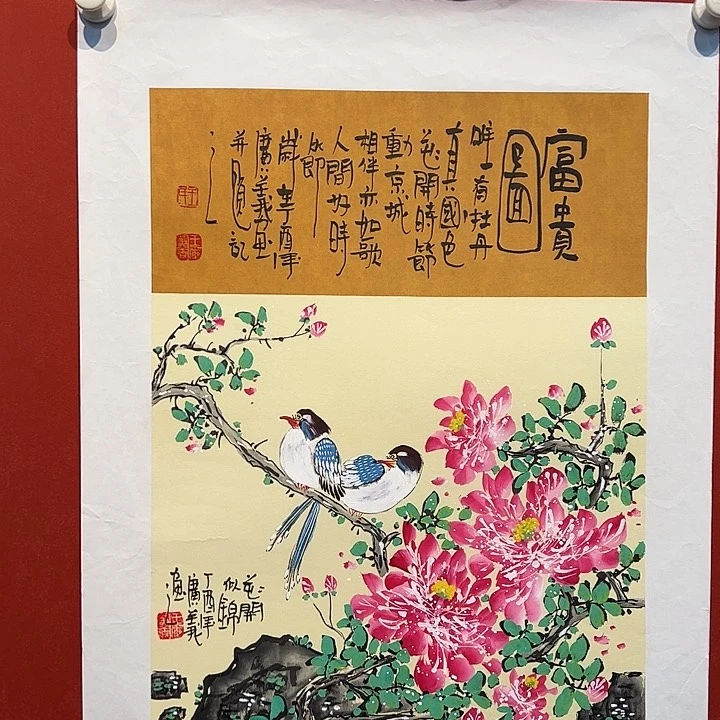 富貴
圖
唯有牡丹
真國色
花開時節
動京城
相伴亦如歌
人間好時
歲酉年
廣義画
并題記
花開
似錦
丁酉年
廣義
画